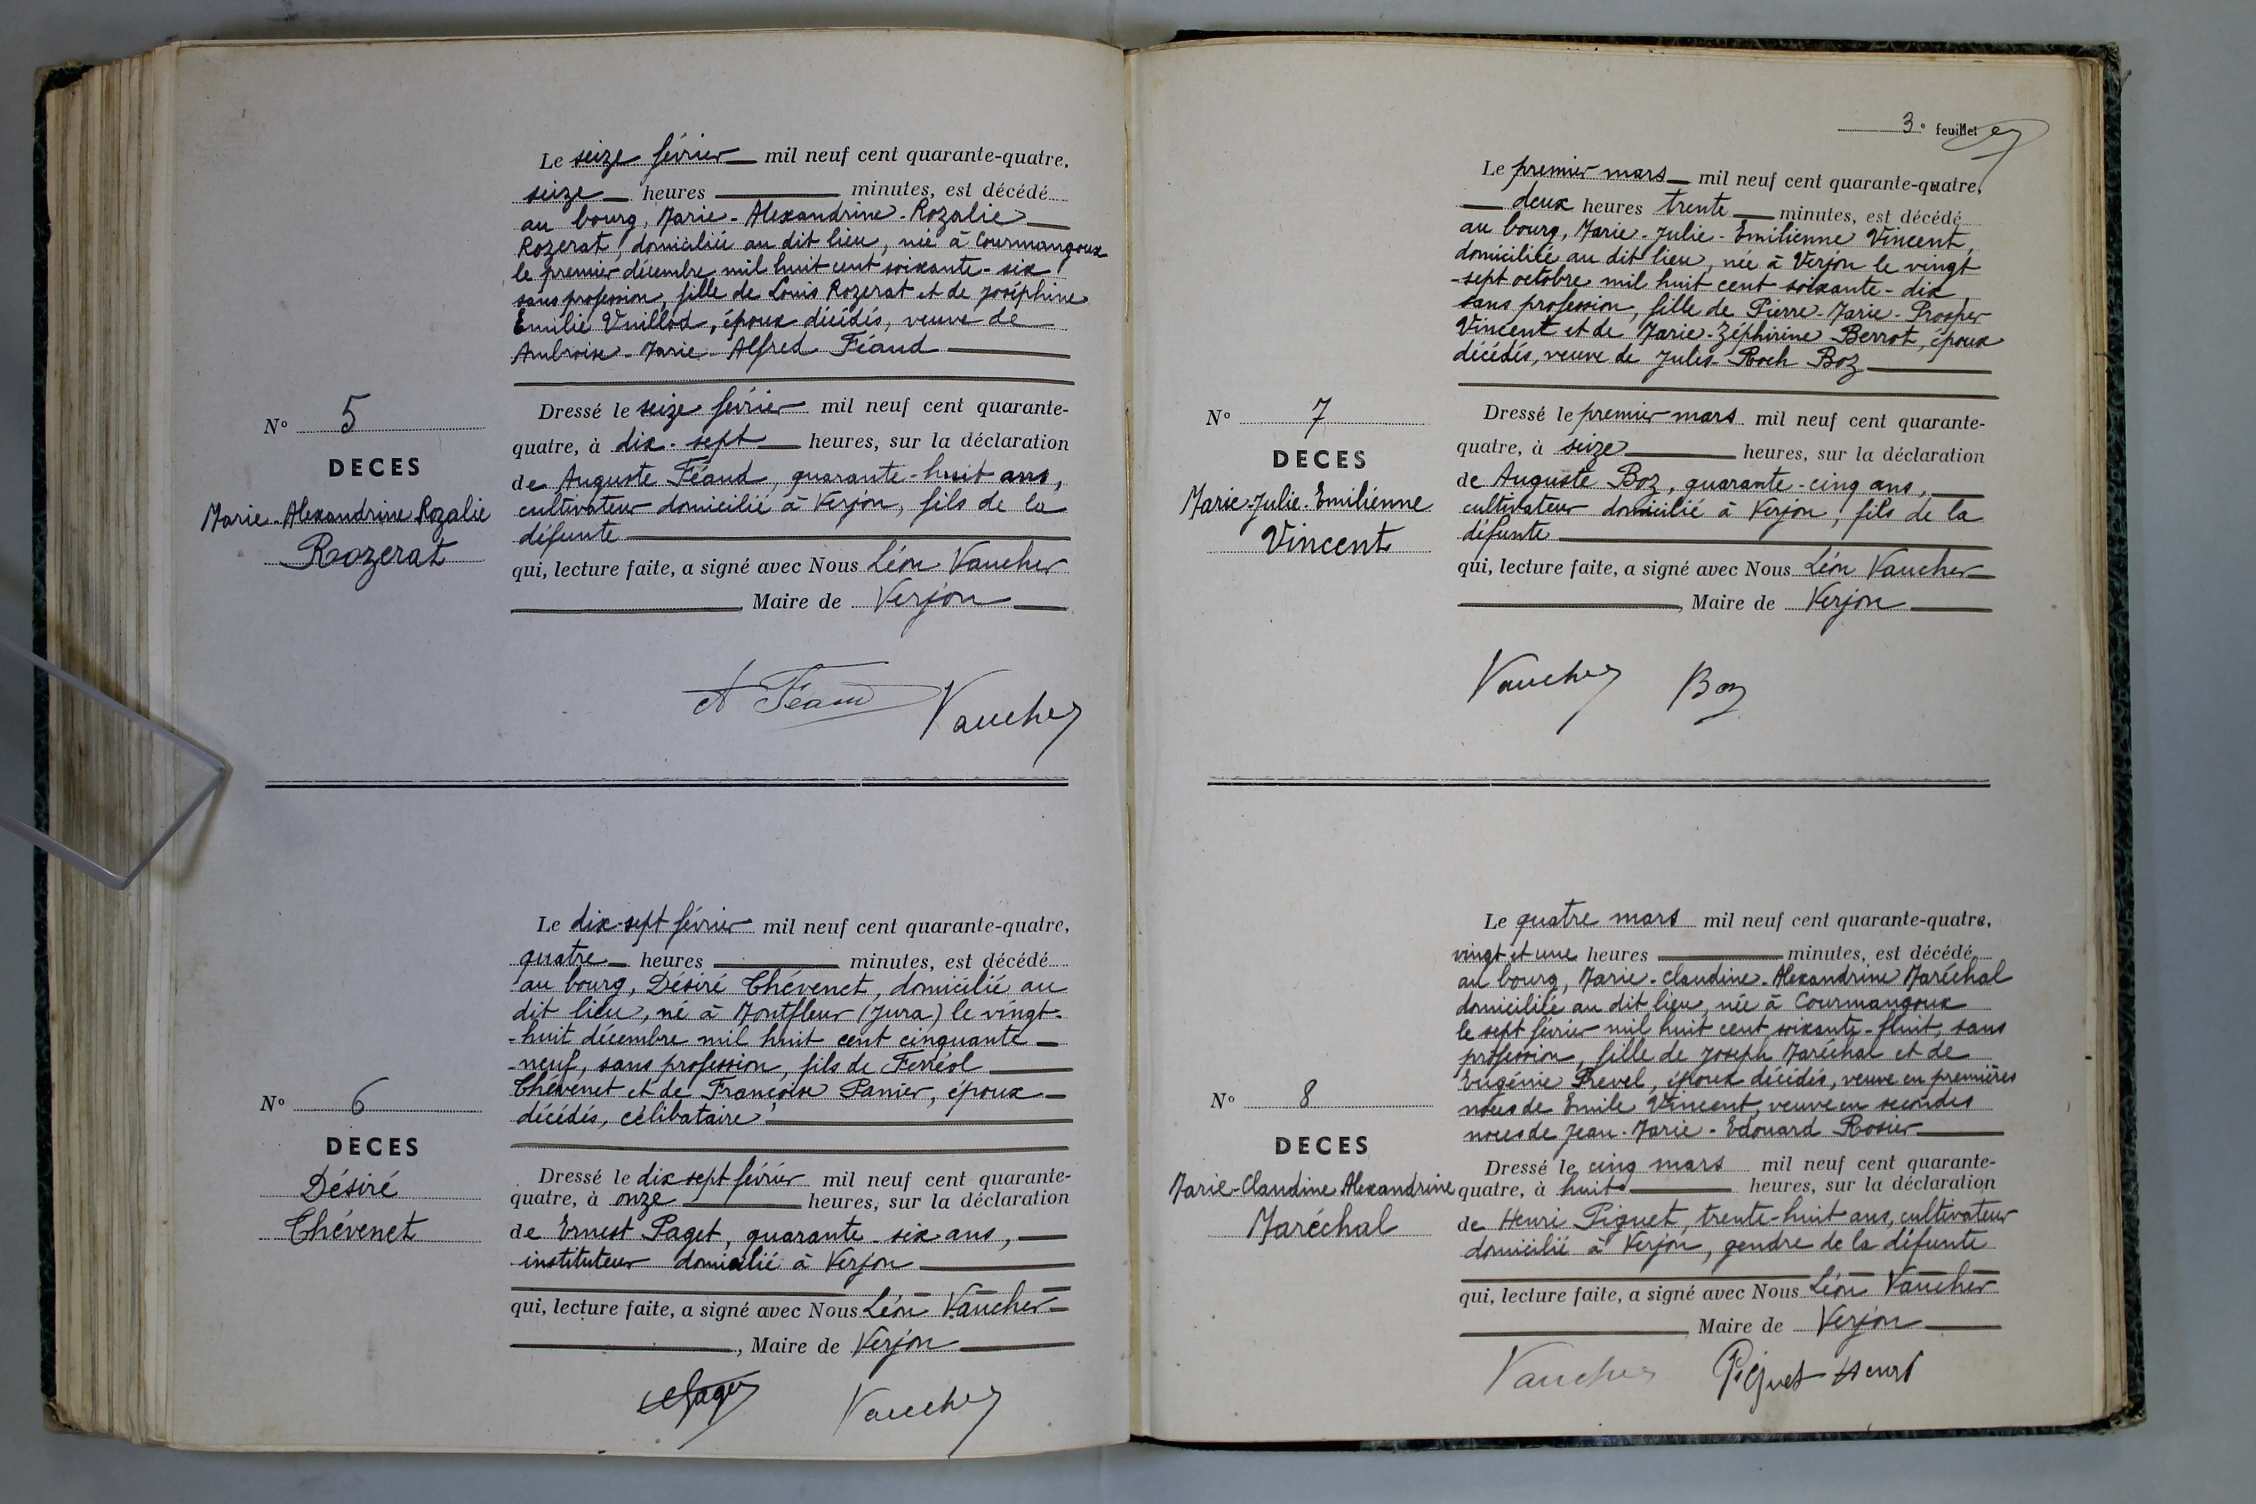 Le seize février mil neuf cent quarante-quatre,
seize heures minutes, est décédé
au bourg, Marie-Alexandrine-Rozalie
Rozerat, domiciliée au dit lieu, née à Courmangoux
le premier décembre mil huit cent soixante-six
sans profession, fille de Louis Rozerat et de Joséphine
Emilie Vuillod, époux décédés, veuve de
Ambroise-Marie-Alfred Féaud
N° 5
DECES
Marie-Alexandrine Rozalie
Rozerat
Dressé le seize février mil neuf cent quarante-
quatre, à dix-sept heures, sur la déclaration
de Auguste Féaud, quarante-huit ans,
cultivateur domicilié à Verjon, fils de la
défunte
qui, lecture faite, a signé avec Nous Léon Vaucher
, Maire de Verjon
A Féaud Vaucher
Le dix-sept février mil neuf cent quarante-quatre,
quatre heures minutes, est décédé
au bourg, Désiré Thévenet, domicilié au
dit lieu, né à Montfleur (Jura) le vingt-
-huit décembre mil huit cent cinquante
-neuf, sans profession, fils de Ferréol
Thévenet et de Françoise Panier, époux
décédés, célibataire
N° 6
DECES
Désiré
Thévenet
Dressé le dix sept février mil neuf cent quarante-
quatre, à onze heures, sur la déclaration
de Ernest Paget, quarante-six ans,
instituteur domicilié à Verjon
qui, lecture faite, a signé avec Nous Léon Vaucher
, Maire de Verjon
EPaget Vaucher
3e feuillet
Le premier mars mil neuf cent quarante-quatre,
deux heures trente minutes, est décédé
au bourg, Marie-Julie-Emilienne Vincent,
domiciliée au dit lieu, née à Verjon le vingt
-sept octobre mil huit cent soixante-dix,
sans profession, fille de Pierre-Marie-Prosper
Vincent et de Marie-Zéphirine Berrot, époux
décédés, veuve de Jules-Roch Boz
N° 7
DECES
Marie-Julie-Emilienne
Vincent
Dressé le premier mars mil neuf cent quarante-
quatre, à seize heures, sur la déclaration
de Auguste Boz, quarante-cinq ans,
cultivateur domicilié à Verjon, fils de la
défunte
qui, lecture faite, a signé avec Nous Léon Vaucher
, Maire de Verjon
Vaucher Boz
Le quatre mars mil neuf cent quarante-quatre,
vingt et une heures minutes, est décédé
au bourg, Marie-Claudine-Alexandrine Maréchal
domiciliée au dit lieu, née à Courmangoux
le sept février mil huit cent soixante-huit, sans
profession, fille de Joseph Maréchal et de
Eugénie Prevel, époux décédés, veuve en premières
noces de Emile Vincent, veuve en secondes
noces de Jean-Marie-Edouard Rosier
N° 8
DECES
Marie-Claudine Alexandrine
Maréchal
Dressé le cinq mars mil neuf cent quarante-
quatre, à huit heures, sur la déclaration
de Henri Piguet, trente-huit ans, cultivateur
domicilié à Verjon, gendre de la défunte
qui, lecture faite, a signé avec Nous Léon Vaucher
, Maire de Verjon
Vaucher Piguet Henri